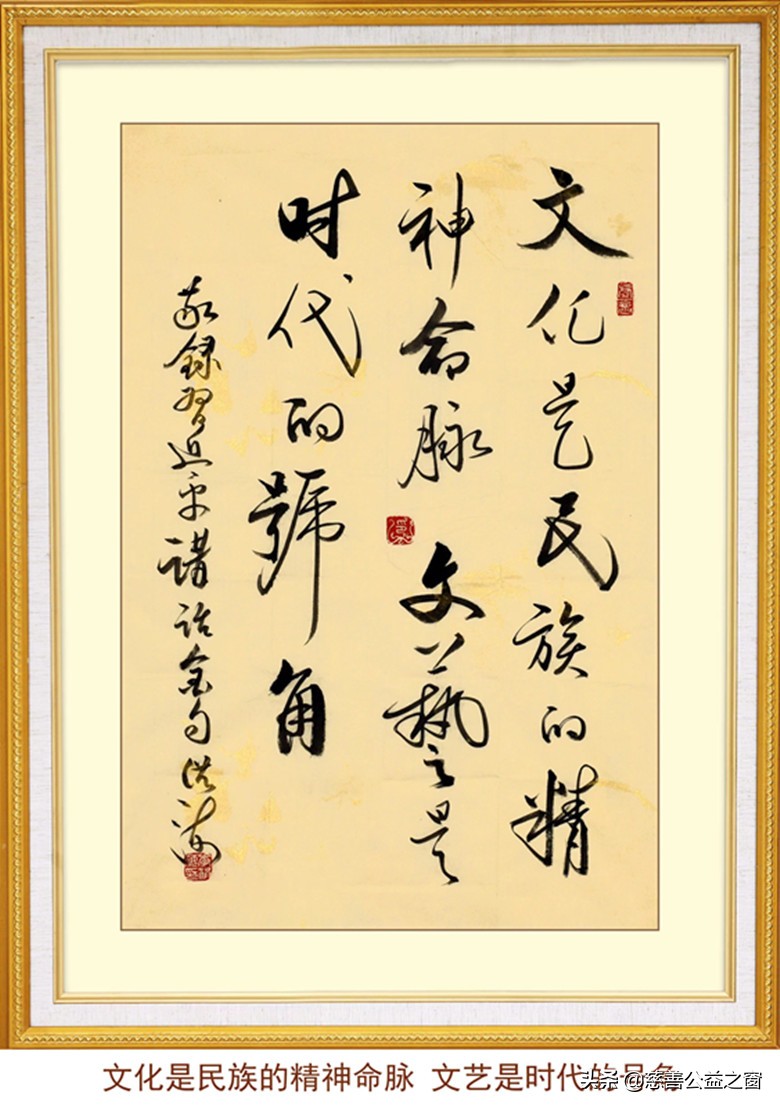 文化是民族的精
神命脉 文藝是
时代的號角
敬録習近平講話金句
文化是民族的精神命脉 文艺是时代的
头条 @慈善公益之窗